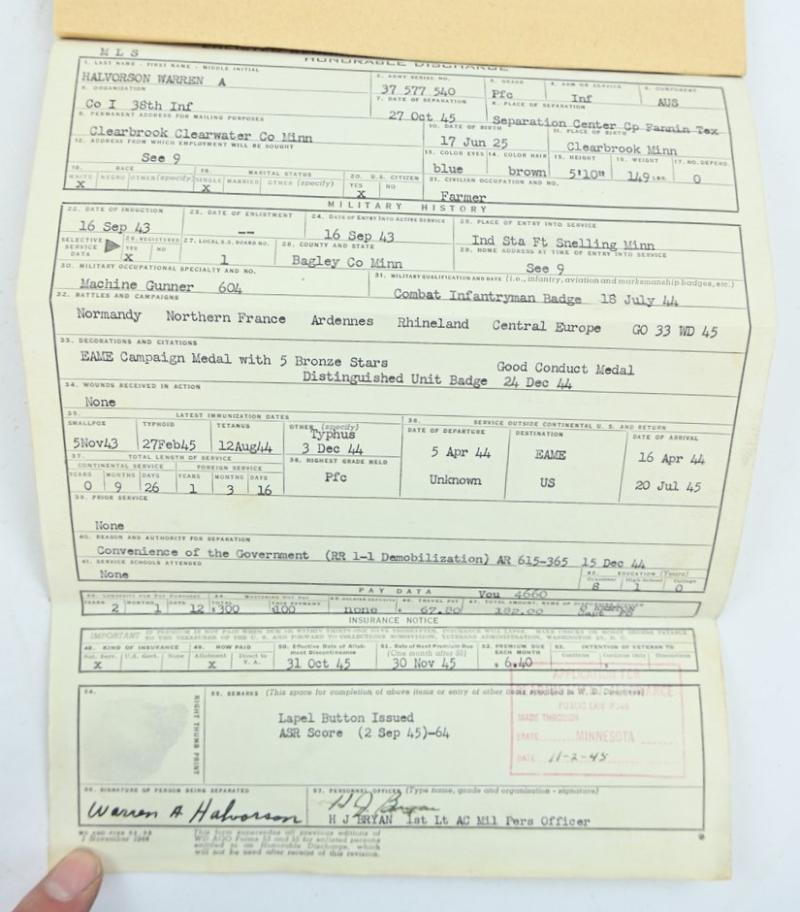 M L S
HONORABLE DISCHARGE
1. LAST NAME - FIRST NAME - MIDDLE INITIAL
HALVORSON WARREN A
2. ARMY SERIAL NO.
37 577 540
3. GRADE
Pfc
4. ARM OR SERVICE
Inf
5. COMPONENT
AUS
6. ORGANIZATION
Co I 38th Inf
7. DATE OF SEPARATION
27 Oct 45
8. PLACE OF SEPARATION
Separation Center Cp Fannin Tex
9. PERMANENT ADDRESS FOR MAILING PURPOSES
Clearbrook Clearwater Co Minn
10. DATE OF BIRTH
17 Jun 25
11. PLACE OF BIRTH
Clearbrook Minn
12. ADDRESS FROM WHICH EMPLOYMENT WILL BE SOUGHT
See 9
13. COLOR EYES
blue
14. COLOR HAIR
brown
15. HEIGHT
5'10"
16. WEIGHT
149 LBS.
17. NO. DEPEND.
0
18. RACE
WHITE NEGRO OTHER (specify)
X
19. MARITAL STATUS
SINGLE MARRIED OTHER (specify)
X
20. U.S. CITIZEN
YES NO
X
21. CIVILIAN OCCUPATION AND NO.
Farmer
MILITARY HISTORY
22. DATE OF INDUCTION
16 Sep 43
23. DATE OF ENLISTMENT
--
24. DATE OF ENTRY INTO ACTIVE SERVICE
16 Sep 43
25. PLACE OF ENTRY INTO SERVICE
Ind Sta Ft Snelling Minn
SELECTIVE SERVICE DATA
26. REGISTERED
YES NO
X
27. LOCAL S.S. BOARD NO.
1
28. COUNTY AND STATE
Bagley Co Minn
29. HOME ADDRESS AT TIME OF ENTRY INTO SERVICE
See 9
30. MILITARY OCCUPATIONAL SPECIALTY AND NO.
Machine Gunner 604
31. MILITARY QUALIFICATION AND DATE (i.e., infantry, aviation and marksmanship badges, etc.)
Combat Infantryman Badge 18 July 44
32. BATTLES AND CAMPAIGNS
Normandy Northern France Ardennes Rhineland Central Europe GO 33 WD 45
33. DECORATIONS AND CITATIONS
EAME Campaign Medal with 5 Bronze Stars Good Conduct Medal
Distinguished Unit Badge 24 Dec 44
34. WOUNDS RECEIVED IN ACTION
None
35. LATEST IMMUNIZATION DATES
SMALLPOX TYPHOID TETANUS OTHER (specify)
Typhus
5Nov43 27Feb45 12Aug44 3 Dec 44
36. SERVICE OUTSIDE CONTINENTAL U.S. AND RETURN
DATE OF DEPARTURE DESTINATION DATE OF ARRIVAL
5 Apr 44 EAME 16 Apr 44
Unknown US 20 Jul 45
37. TOTAL LENGTH OF SERVICE
CONTINENTAL SERVICE FOREIGN SERVICE
YEARS MONTHS DAYS YEARS MONTHS DAYS
0 9 26 1 3 16
38. HIGHEST GRADE HELD
Pfc
39. PRIOR SERVICE
None
40. REASON AND AUTHORITY FOR SEPARATION
Convenience of the Government (RR 1-1 Demobilization) AR 615-365 15 Dec 44
41. SERVICE SCHOOLS ATTENDED
None
42. EDUCATION (Years)
Grammar High School College
8 1 0
PAY DATA
Vou 4660
43. LONGEVITY FOR PAY PURPOSES
YEARS MONTHS DAYS
2 1 12
44. MUSTERING OUT PAY
$300
none
67.80
INSURANCE NOTICE
IMPORTANT
48. KIND OF INSURANCE
Nat. Serv. U.S. Govt. None
X
49. HOW PAID
Allotment Direct to V. A.
X
50. Effective Date of Allotment Discontinuance
31 Oct 45
51. Date of Next Premium Due
(One month after 50)
30 Nov 45
52. PREMIUM DUE EACH MONTH
$ 6.40
53. INTENTION OF VETERAN TO
54.
RIGHT THUMB PRINT
55. REMARKS (This space for completion of above items or entry of other items specified in W. D. Directives)
Lapel Button Issued
ASR Score (2 Sep 45)-64
APPLICATION FOR
MADE THROUGH
STATE MINNESOTA
DATE 11-2-45
56. SIGNATURE OF PERSON BEING SEPARATED
Warren A Halvorson
57. PERSONNEL OFFICER (Type name, grade and organization - signature)
H J Bryan
H J BRYAN 1st Lt AC Mil Pers Officer
1 November 1944
This form supersedes all previous editions of
WD AGO Forms 53 and 55 for enlisted persons
entitled to an Honorable Discharge, which
will not be used after receipt of this revision.